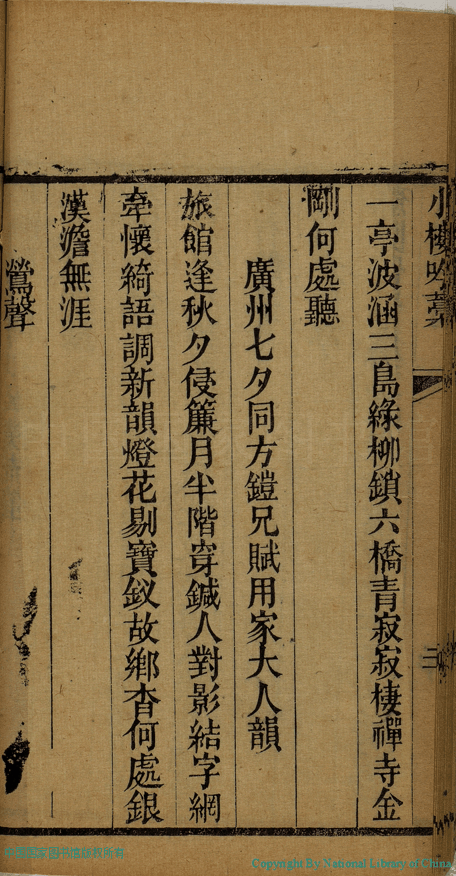 小樓吟藁
二
一亭波涵三島綠柳鎖六橋青寂寂棲禪寺金
剛何處聽
廣州七夕同方鎧兄賦用家大人韻
旅館逢秋夕侵簾月半階穿鍼人對影結字網
牽懷綺語調新韻燈花剔寶釵故鄉杳何處銀
漢澹無涯
鶯聲
Copyright By National Library of China